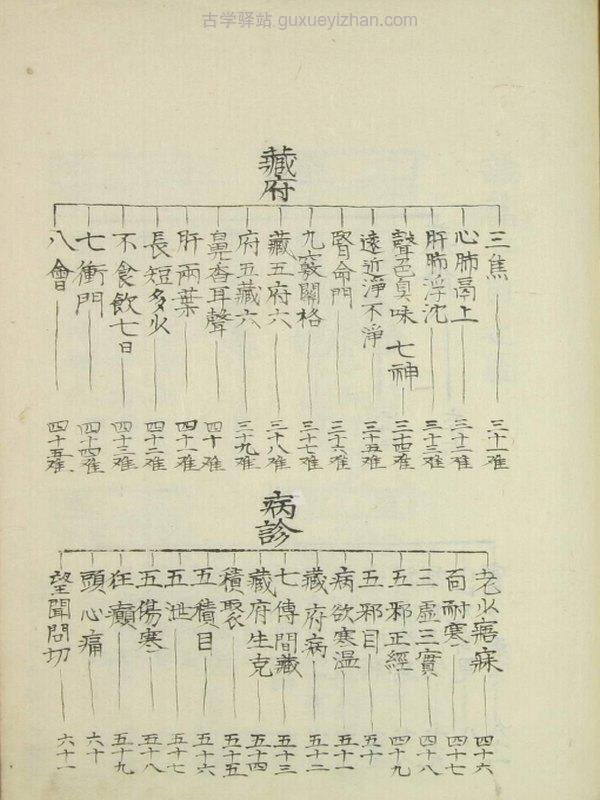 古学驿站 guxueyizhan.com
藏府
三焦 三十一难
心肺鬲上 三十二难
肝肺浮沈 三十三难
聲色臭味 七神 三十四难
遠近淨不淨 三十五难
腎命門 三十六难
九竅關格 三十七难
藏五府六 三十八难
府五藏六 三十九难
鼻香耳聲 四十难
肝兩葉 四十一难
長短多少 四十二难
不食飲七日 四十三难
七衝門 四十四难
八會 四十五难
病診
老少寤寐 四十六
面耐寒 四十七
三虛三實 四十八
五邪正經 四十九
五邪目 五十
病欲寒温 五十一
藏府病 五十二
七傳間藏 五十三
藏府生克 五十四
積聚 五十五
五積目 五十六
五泄 五十七
五傷寒 五十八
狂癲 五十九
頭心痛 六十
望聞問切 六十一